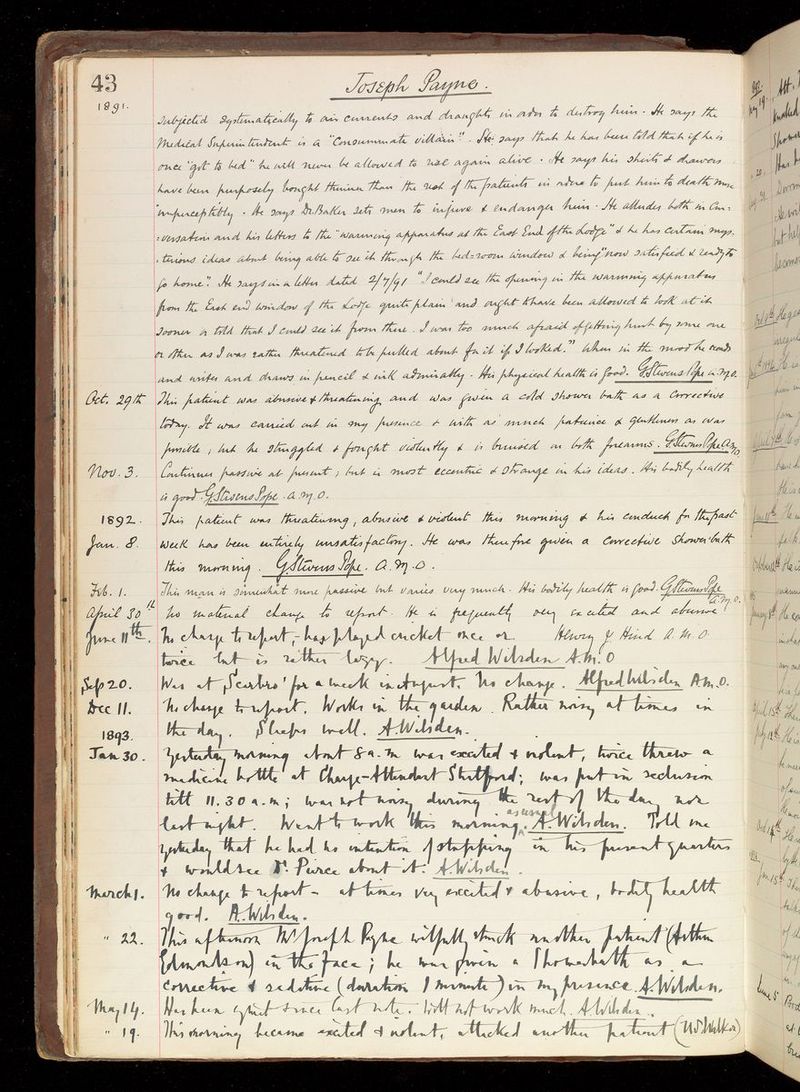 43
Joseph Payne.
1891.
subjected systematically to air currents and draughts in order to destroy him. He says the
Medical Superintendent is a "Consummate villain". He says that he has been told that if he is
once "got to bed" he will never be allowed to rise again alive. He says his shirts & drawers
have been purposely bought thinner than the rest of the patients in order to put him to death more
imperceptibly. He says Dr. Baker sets men to injure & endanger him. He alludes both in Con:
:versation and his letters to the "warming apparatus at the East End of the Lodge" & he has certain mys:
:terious ideas about being able to see it through the bed-room window & being "now satisfied & ready to
go home". He says in a letter dated 2/7/91 "I could see the opening in the warming apparatus
from the East end window of the Lodge quite plain and ought to have been allowed to look at it
sooner or told that I could see it from there. I was too much afraid of getting hurt by some one
or other as I was rather threatened to be pulled about for it if I looked." When in the mood he reads
and writes and draws in pencil & ink admirably. His physical health is good. G. Stevens Pope A.M.O.
Oct. 29th This patient was abusive & threatening and was given a cold shower bath as a corrective
today. It was carried out in my presence & with as much patience & gentleness as was
possible, but he struggled & fought violently & is bruised on both forearms. G. Stevens Pope A.M.O.
Nov. 3. Continues passive at present; but is most eccentric & strange in his ideas. His bodily health
is good. G. Stevens Pope. A.M.O.
1892. This patient was threatening, abusive & violent this morning & his conduct for the past
Jan. 8. week has been entirely unsatisfactory. He was therefore given a corrective shower bath
this morning. G. Stevens Pope. A.M.O.
Feb. 1. This man is somewhat more passive but varies very much. His bodily health is good. G. Stevens Pope A.M.O.
April 30th No material change to report. He is frequently very excited and abusive
June 11th. No change to report, - has played cricket once or Henry G Hind A.M.O.
twice but is rather lazy. Alfred Wilsden A.M.O
Sep 20. Was at 'Scarbro' for a week in August. No change. Alfred Wilsden A.M.O.
Dec 11. No change to report. Works in the garden. Rather noisy at times in
the day. Sleeps well. A. Wilsden.
1893.
Jan 30. Yesterday morning about 8 a.m. was excited & violent, twice threw a
medicine bottle at Charge-Attendant Shettford; was put in seclusion
till 11.30 a.m; was not noisy during the rest of the day nor
last night. Went to work this morning as usual. A. Wilsden. Told me
yesterday that he had no intention of stopping in his present quarters
& would see Dr. Pierce about it. A. Wilsden.
March 1. No change to report - at times very excited & abusive, bodily health
good. A. Wilsden.
" 22. This afternoon Mr Joseph Payne wilfully struck another patient (Arthur
Edmondson) in the face; he was given a Showerbath as a
corrective & sedative (duration 1 minute) in my presence. A. Wilsden.
May 14. Has been quiet since last note. Will not work much. A. Wilsden.
" 19. This morning became excited & violent, attacked another patient (W.S. Walker)